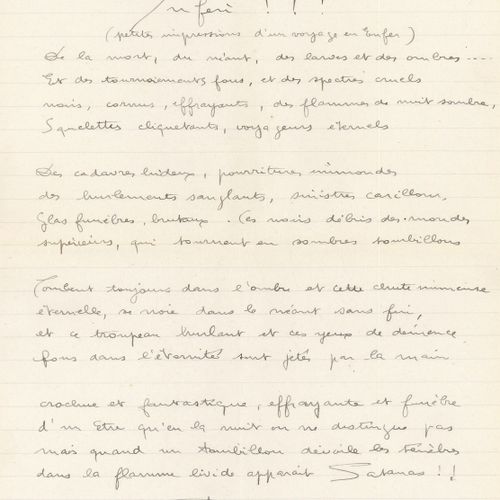 Inferi ! ! !
(petites impressions d'un voyage en Enfer)
De la mort, du néant, des larves et des ombres ....
Et des tournoiements fous, et des spectres cruels
noirs, cornus, effrayants, des flammes de nuit sombre,
Squelettes cliquetants, voyageurs éternels
Des cadavres hideux, pourritures immondes
des hurlements sanglants, sinistres carillons,
Glas funèbres, brutaux. Ces noirs débris des mondes
supérieurs, qui tournent en sombres tourbillons
Tombent toujours dans l'ombre et cette chute
éternelle, se noie dans le néant sans fin,
et ce troupeau hurlant et ces yeux de démence
fous dans l'éternité sont jetés par la main
crochue et fantastique, effrayante et funèbre
d'un Etre qu'en la nuit on ne distingue pas
mais quand un tourbillon dévoile les ténèbres
dans la flamme livide apparaît Satanas !!